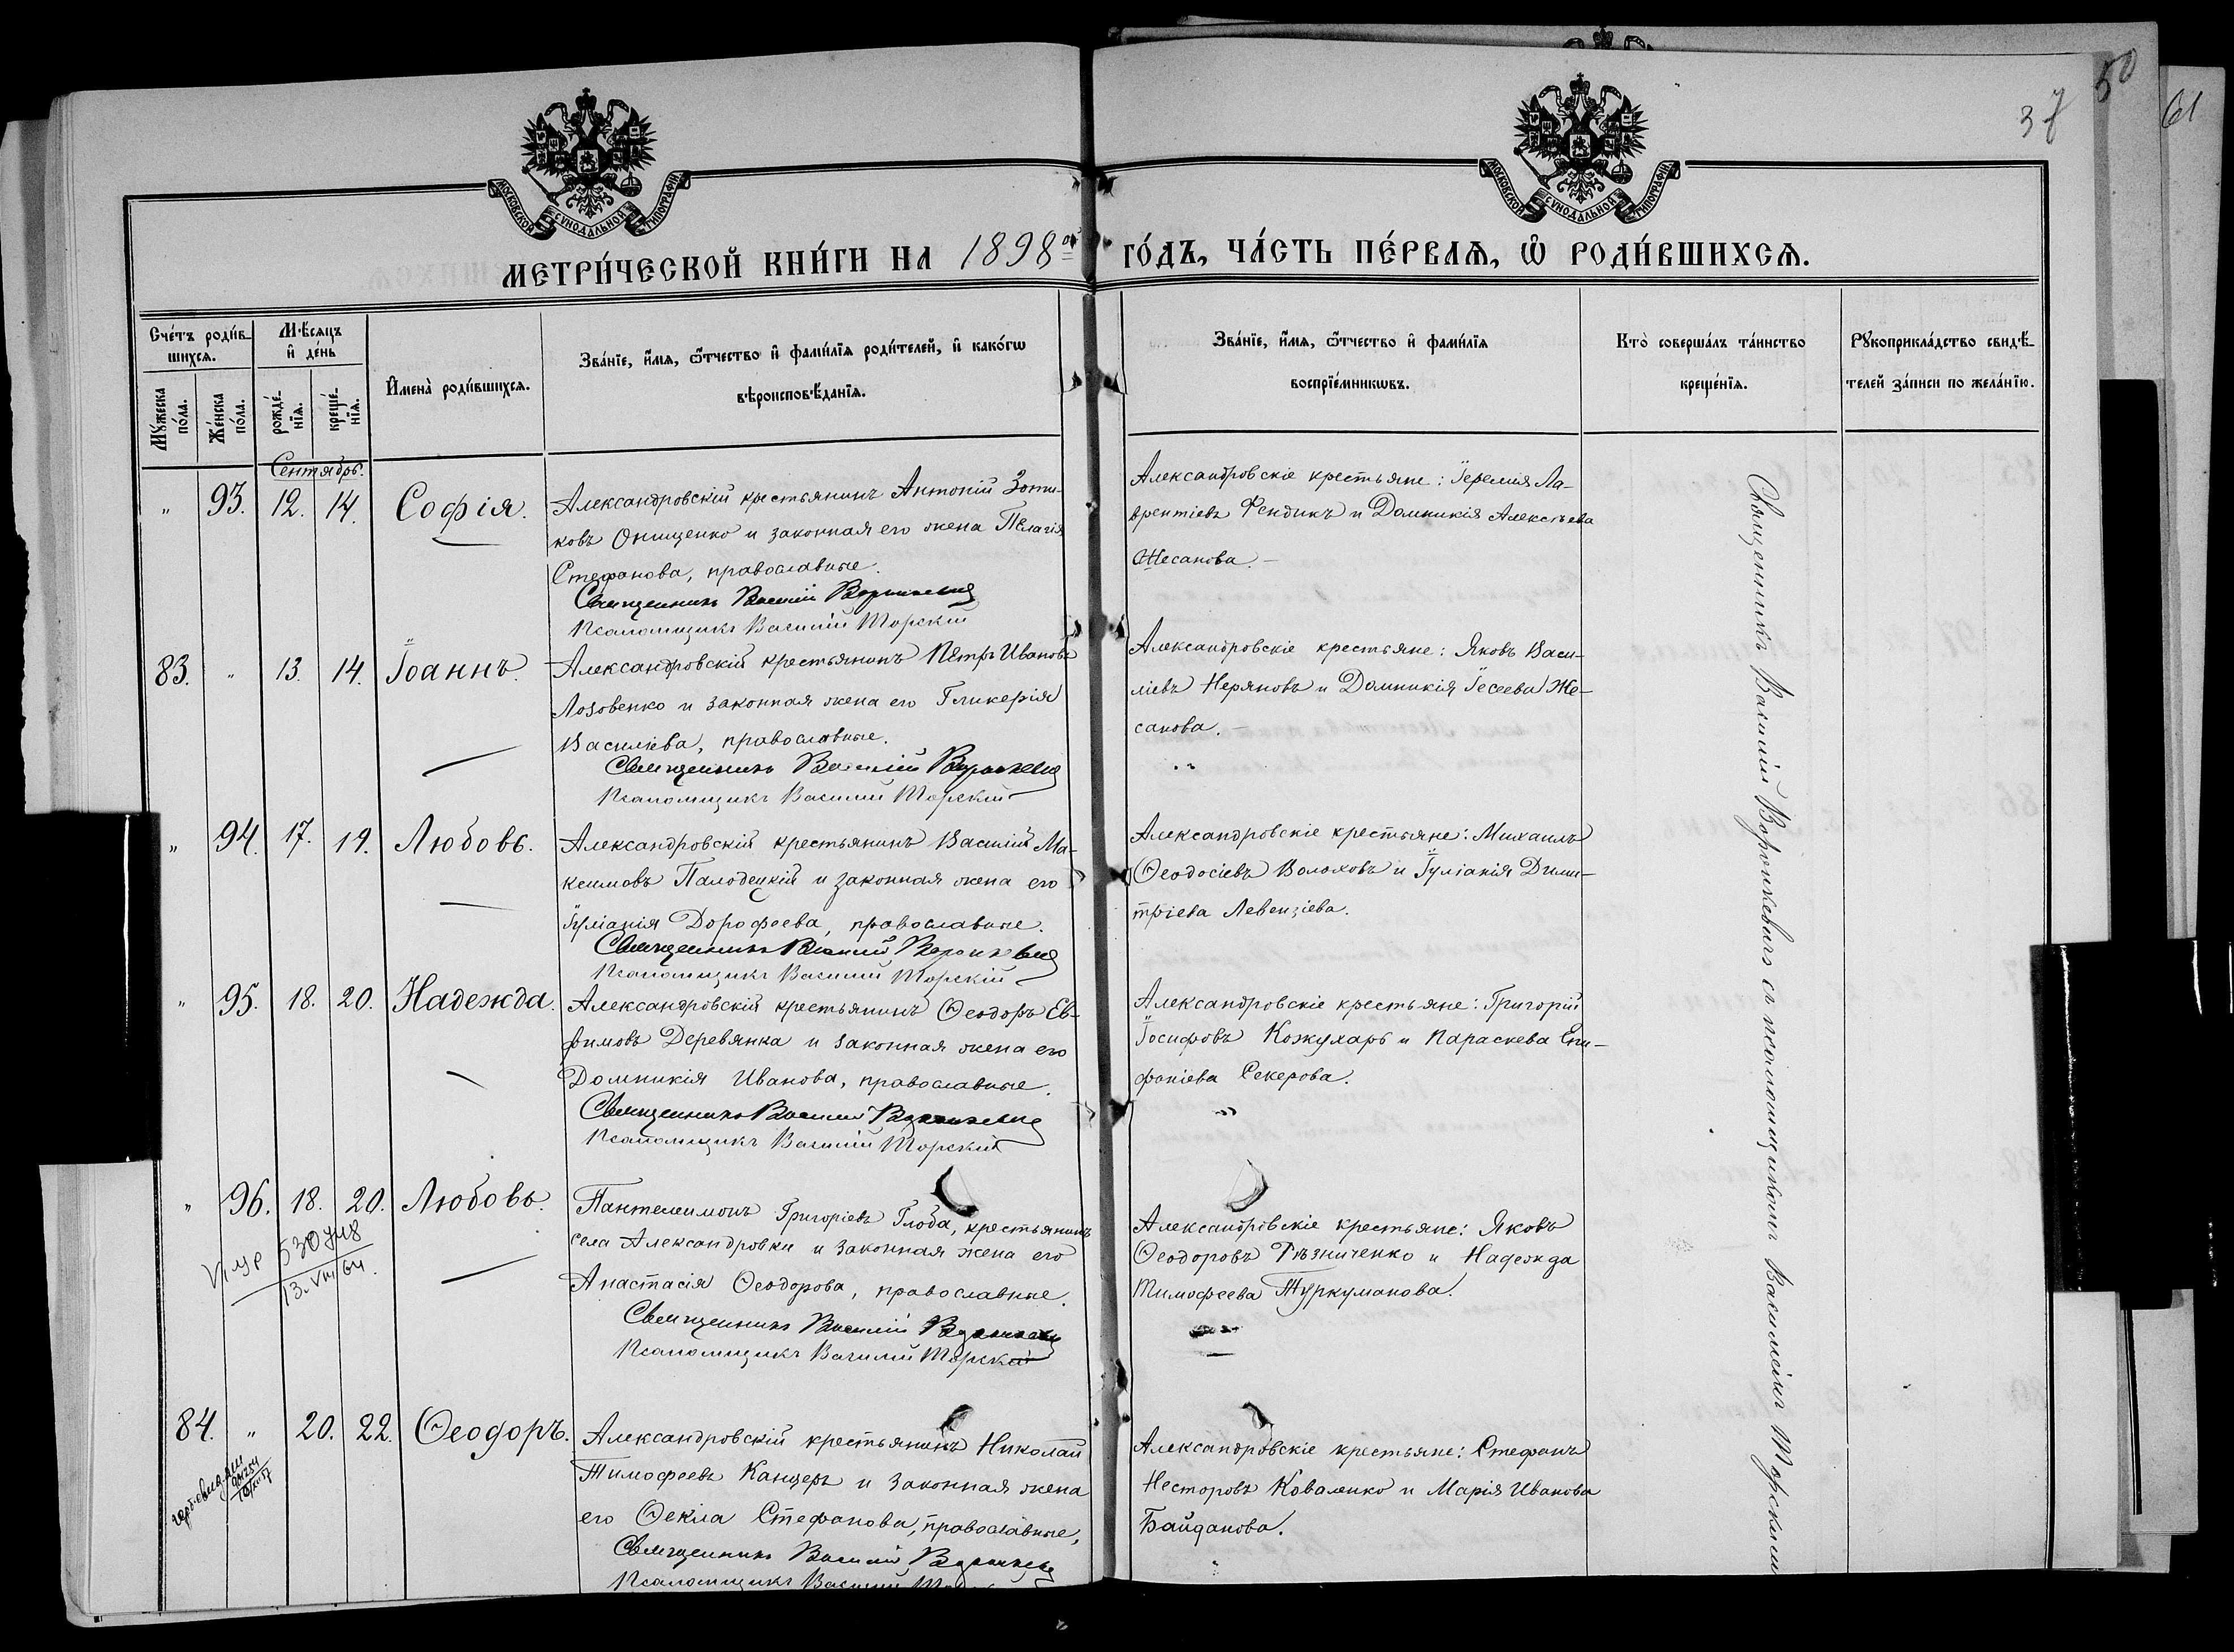 50
37
61
МОСКОВСКОЙ СѴНОДАЛЬНОЙ ТИПОГРАФІИ
МОСКОВСКОЙ СѴНОДАЛЬНОЙ ТИПОГРАФІИ
МЕТРИ́ЧЕСКОЙ КНИ́ГИ НА 1898 ой ГО́ДЪ, ЧА́СТЬ ПЕ́РВАѦ, Ѽ РОДИ́ВШИХСѦ.
Сче́тъ роди́в-
шихсѧ.
Мꙋ́жеска по́ла.
Же́нска по́ла.
Мѣ́сѧцъ
и҆ де́нь
рожде́-
нїѧ.
креще́-
нїѧ.
И҆мена̀ роди́вшихсѧ.
Зва́нїе, и҆́мѧ, ѻ҆́тчество и҆ фами́лїѧ роди́телей, и҆ како́гѡ
вѣроисповѣ́данїѧ.
Зва́нїе, и҆́мѧ, ѻ҆́тчество и҆ фами́лїѧ
воспрїе́мникѡвъ.
Кто̀ соверша́лъ та́инство
креще́нїѧ.
Рꙋкоприкла́дство свидѣ́-
телей за́писи по жела́нїю.
Сентябрь.
" 93. 12. 14. Софія.
Александровскій крестьянинъ Антоній Зоти-
ковъ Онищенко и законная его жена Пелагія
Стефанова, православные.
Священникъ Василій Воронкевич
Псаломщикъ Василій Торскій
Александровскіе крестьяне: Іеремія Ла-
врентіевъ Фендикъ и Домникія Алексѣева
Жесанова.
83. " 13. 14. Іоаннъ.
Александровскій крестьянинъ Петръ Ивановъ
Лозовенко и законная жена его Гликерія
Василіева, православные.
Священникъ Василій Воронкевич
Псаломщикъ Василій Торскій
Александровскіе крестьяне: Яковъ Васи-
ліевъ Неряновъ и Домникія Іесеева Же-
санова.
" 94. 17. 19. Любовь.
Александровскій крестьянинъ Василій Ма-
ксимовъ Палодецкій и законная жена его
Іуліанія Дорофеева, православные.
Священникъ Василій Воронкевич
Псаломщикъ Василій Торскій
Александровскіе крестьяне: Михаилъ
Ѳеодосіевъ Волоховъ и Іуліанія Дими-
тріева Левензіева.
" 95. 18. 20. Надежда.
Александровскій крестьянинъ Ѳеодоръ Ев-
фимовъ Деревянка и законная жена его
Домникія Иванова, православные.
Священникъ Василій Воронкевич
Псаломщикъ Василій Торскій
Александровскіе крестьяне: Григорій
Іосифовъ Кожухарь и Параскева Епи-
фаніева Секерова.
" 96. 18. 20. Любовь.
13.VIII 64.
Пантелеимонъ Григоріевъ Глоба, крестьянинъ
села Александровки и законная жена его
Анастасія Ѳеодорова, православные.
Священникъ Василій Воронкевич
Псаломщикъ Василій Торскій
Александровскіе крестьяне: Яковъ
Ѳеодоровъ Рѣзниченко и Надежда
Тимофеева Туркуманова.
84. " 20. 22. Ѳеодоръ.
Александровскій крестьянинъ Николай
Тимофеевъ Канцеръ и законная жена
его Ѳекла Стефанова, православные,
Священникъ Василій Воронкевич
Псаломщикъ Василій
Александровскіе крестьяне: Стефанъ
Несторовъ Коваленко и Марія Иванова
Байданова.
Священникъ Василій Воронкевичъ съ псаломщикомъ Василіемъ Торскимъ